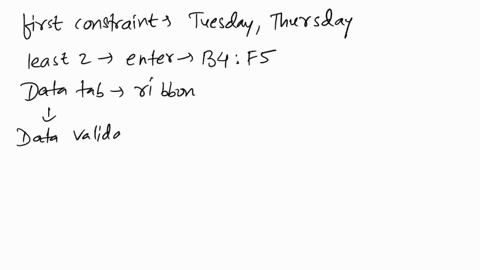 first constraint → Tuesday, Thursday
least 2 → enter → B4 : F5
Data tab → ribbon
↓
Data valida